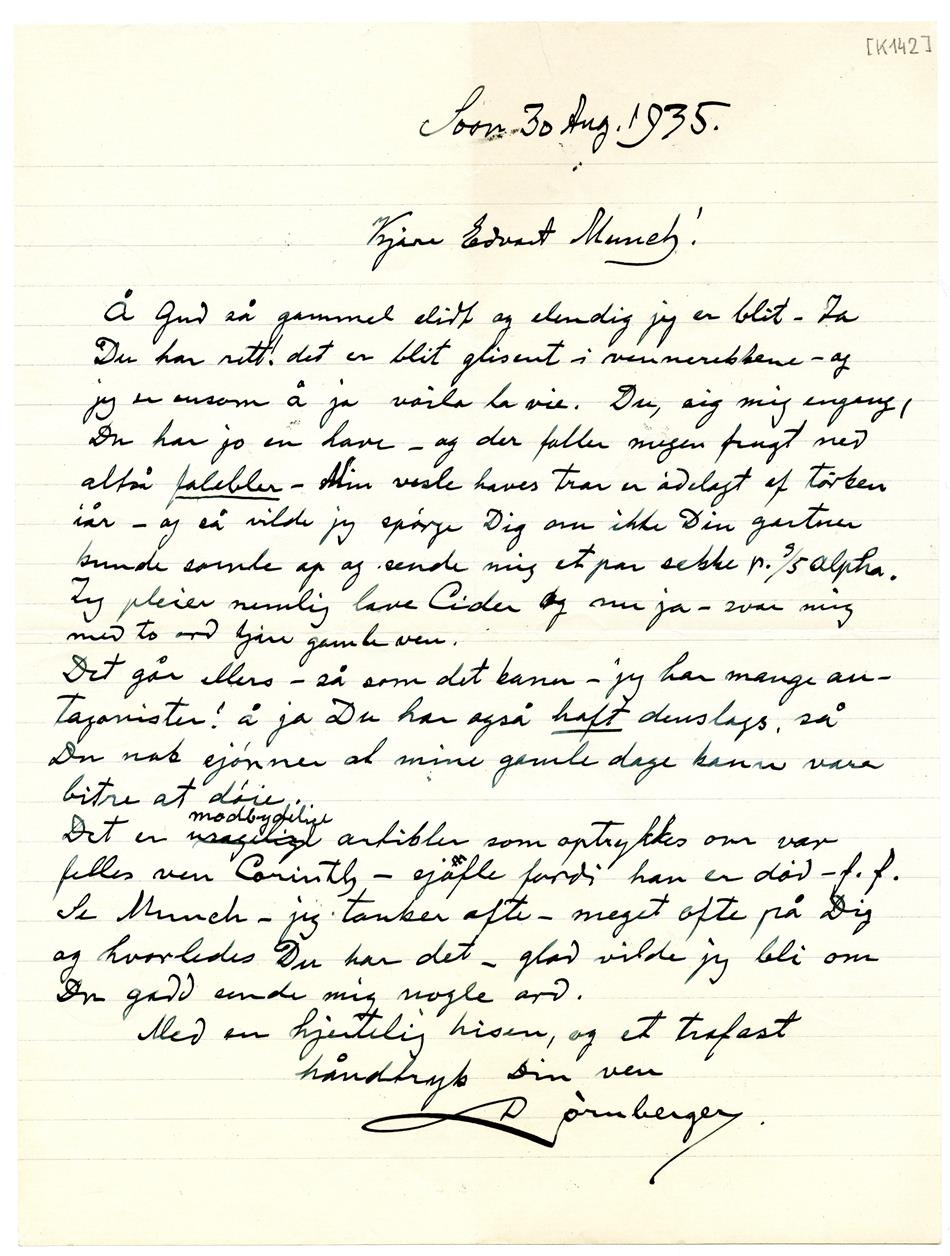 [K142]
Soon 30 Aug. 1935.
Kjære Edvart Munch!
Å Gud så gammel slidt og elendig jeg er blit – Ja
Du har rett! det er blit glisent i vennerekkene – og
jeg er ensom å ja voila la vie. Du, sig mig engang,
Du har jo en have – og der faller megen frugt ned
altså falebler – Min vesle haves trær er ödelagt af törken
iår – og så vilde jeg spörge Dig om ikke Din gartner
kunde samle op og sende mig et par sekke p. 9/5 alpha.
Jeg pleier nemlig lave Cider og nu ja – svar mig
med to ord kjære gamle ven.
Det går ellers – så som det kann – jeg har mange an-
tagonister! å ja Du har også haft denslags, så
Du nok sjönner at mine gamle dage kann være
bitre at döie.
Det er modbydelige artikler som optrykkes om vor
felles ven Corinth – sjöfle fordi han er död – f. f.
Se Munch – jeg tænker ofte – meget ofte på Dig
og hvorledes Du har det – glad vilde jeg bli om
Du gadd sende mig nogle ord.
Med en hjertelig hilsen, og et trofast
håndtryk Din ven
Dörnberger.